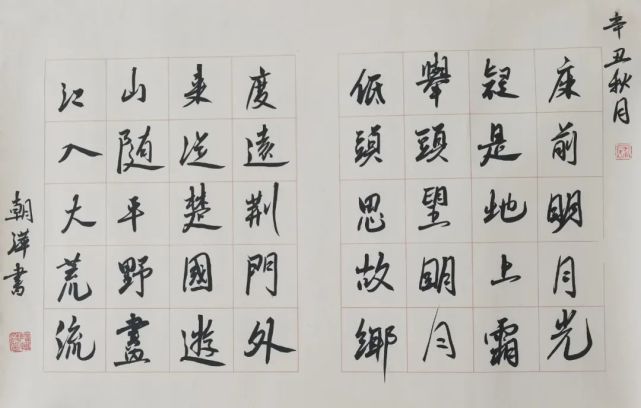 辛丑秋月
床前明月光
疑是地上霜
舉頭望明月
低頭思故鄉
度遠荊門外
來從楚國遊
山隨平野盡
江入大荒流
朝書